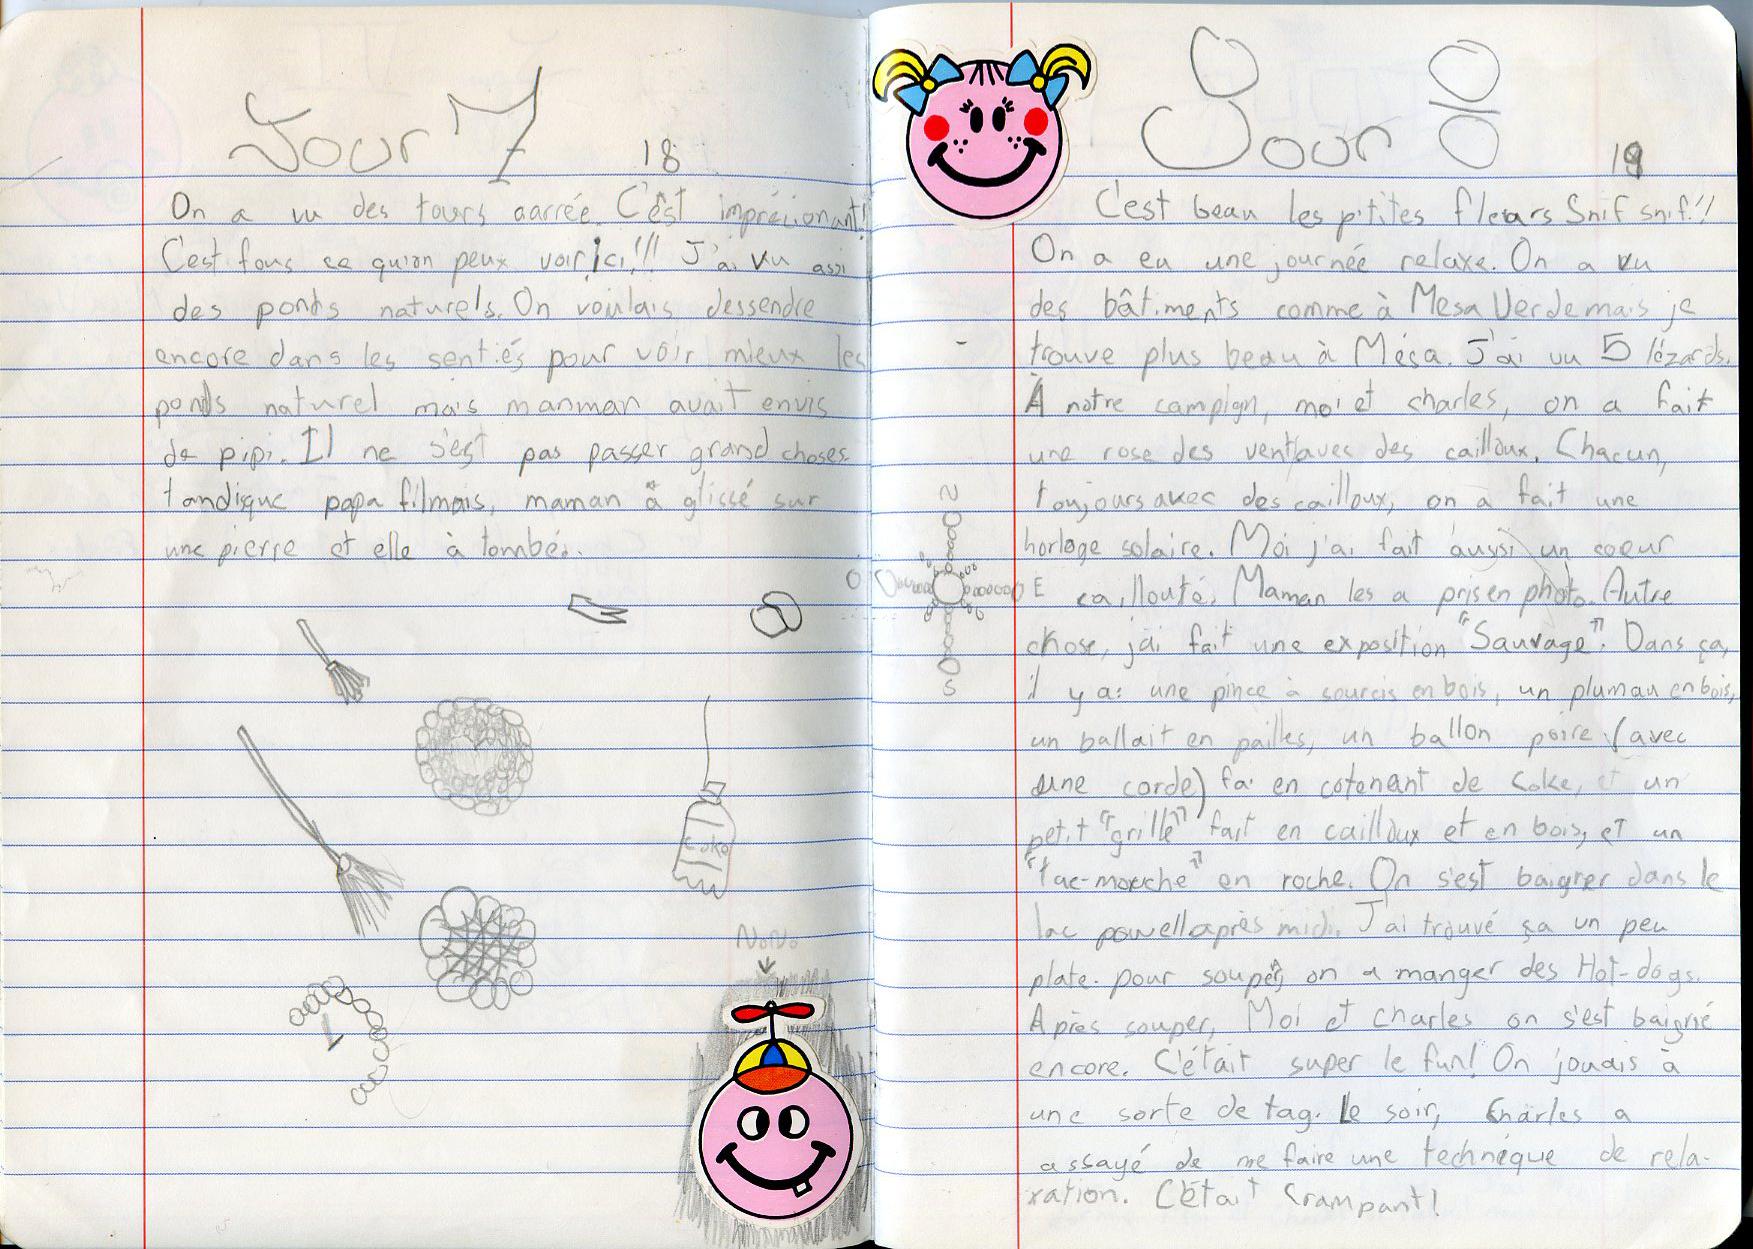 Jour 7 18
On a vu des tours aarrée. C'êst imprécionant!
C'est fous ce qu'on peux voir ici!!! J'ai vu assi
des ponts naturels. On voulais dessendre
encore dans les sentiés pour voir mieux les
ponts naturel mais manman avait envis
de pipi. Il ne s'est pas passer grand choses
tandisque papa filmais, maman à glissé sur
une pierre et elle à tombée.
Coke
Jour 8 19
C'est beau les p'tites fleurs Snif snif!!
On a eu une journée relaxe. On a vu
des bâtiments comme à Mesa Verde mais je
trouve plus beau à Mésa. J'ai vu 5 lézards.
À notre campign, moi et charles, on a fait
une rose des vents aves des cailloux. Chacun,
toujours avec des cailloux, on a fait une
horloge solaire. Moi j'ai fait aussi un coeur
caillouté. Maman les a pris en photo. Autre
chose, j'ai fait une exposition "Sauvage". Dans ça,
il y a: une pince à sourcis en bois, un plumau en bois,
un ballait en pailles, un ballon poire (avec
une corde) fai en cotenant de Coke, et un
petit "grille" fait en cailloux et en bois, et un
"tac-mouche" en roche. On s'est baigner dans le
lac powell après midi. J'ai trouvé ça un peu
plate. pour souper, on a manger des Hot-dogs.
Après souper, Moi et charles on s'est baigné
encore. C'était super le fun! On jouais à
une sorte de tag. Le soir, Charles a
assayé de me faire une technique de rela-
xation. C'était Crampant!
N
O E
S